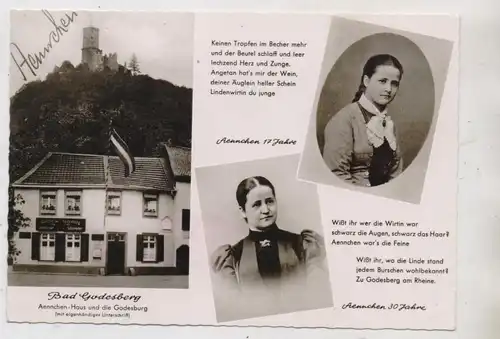 Aennchen
Keinen Tropfen im Becher mehr
und der Beutel schlaff und leer
lechzend Herz und Zunge.
Angetan hat's mir der Wein,
deiner Äuglein heller Schein
Lindenwirtin du junge
Aennchen 17 Jahre
Wißt ihr wer die Wirtin war
schwarz die Augen, schwarz das Haar?
Aennchen war's die Feine
Wißt ihr, wo die Linde stand
jedem Burschen wohlbekannt?
Zu Godesberg am Rheine.
Aennchen 30 Jahre
Bad Godesberg
Aennchen-Haus und die Godesburg
(mit eigenhändiger Unterschrift)